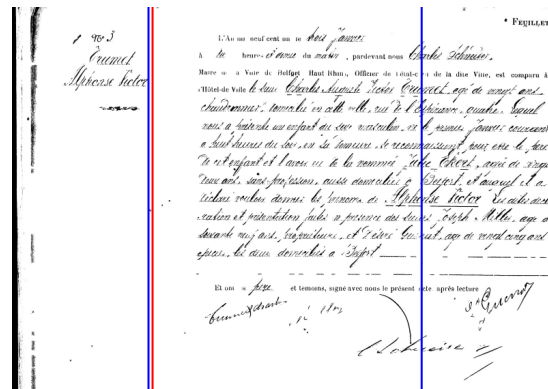 * FEUILLET
N° 3
Trumet
Alphonse Victor
L'An mil neuf cent un le trois Janvier
à dix heures et demie du matin, pardevant nous Charles Schneider,
Maire de la Ville de Belfort Haut Rhin, Officier de l'état-civil de la dite Ville, est comparu à
l'Hôtel-de-Ville le sieur Charles Auguste Victor Trumet, âgé de vingt ans
domicilié en cette ville, rue de l'Espérance, quatre, lequel
nous a présenté un enfant du sexe masculin, né le premier Janvier courant
à huit heures du soir, en sa demeure, se reconnaissant pour être le père
de cet enfant et l'avoir eu de la nommée Julie
deux ans, sans profession, aussi domiciliée à Belfort, et auquel il a
déclaré vouloir donner les prénoms de Alphonse Victor. Les dites décla
ration et présentation faites en présence des sieurs Joseph Miller, âgé de
soixante neuf ans, propriétaire, et Désiré âgé de vingt cinq ans
les deux domiciliés à Belfort
Et ont le père et témoins, signé avec nous le présent acte après lecture